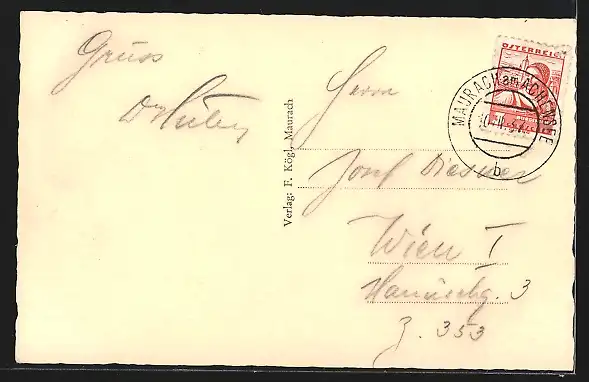 Gruss
Dr Huber
Verlag: F. Kögl, Maurach
ÖSTERREICH
MAURACH am ACHENSEE
b
Herrn
Josef
Wien I
Hanuschg. 3
Z. 353